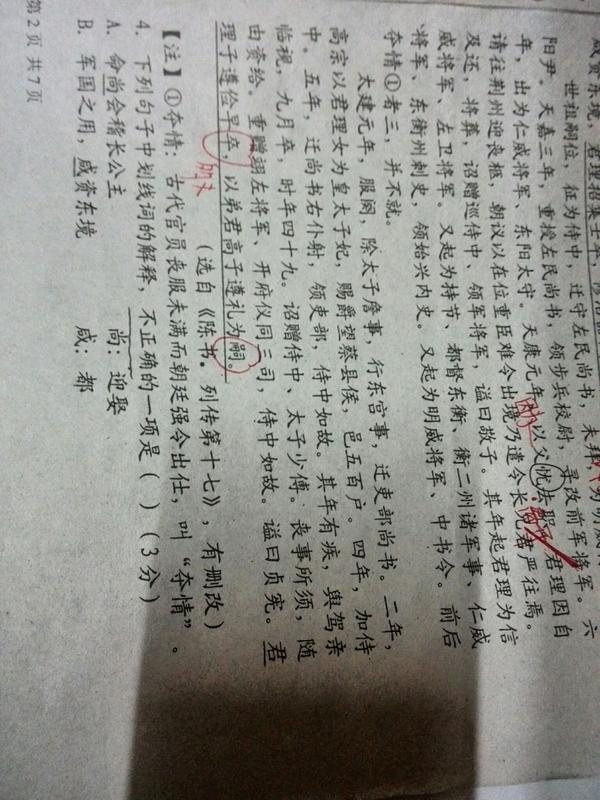 咸资东境，君理招集士卒，
世祖嗣位，征为侍中，迁守左民尚书，未拜，为明威将
阳尹。天嘉三年，重授左民尚书，领步兵校尉，寻改前军将军。六
年，出为仁威将军、东阳太守。天康元年，以父忧去职，君理因自
请往荆州迎丧柩，朝议以在位重臣难令出境，乃遣令长兄君严往焉。
及还，将葬，诏赠巡侍中、领军将军，谥曰敬子。其年起君理为信
威将军、左卫将军。又起为持节、都督东衡、衡二州诸军事、仁威
将军、东衡州刺史，领始兴内史。又起为明威将军、中书令。前后
夺情①者三，并不就。
太建元年，服阕，除太子詹事，行东宫事，迁吏部尚书。二年，
高宗以君理女为皇太子妃，赐爵望蔡县侯，邑五百户。四年，加侍
中。五年，迁尚书右仆射，领吏部，侍中如故。其年有疾，舆驾亲
临视，九月卒，时年四十九。诏赠侍中、太子少傅。丧事所须，随
由资给。重赠翊左将军、开府仪同三司，侍中如故。谥曰贞宪。君
理子遵俭早卒，以弟君高子遵礼为嗣。
（选自《陈书。列传第十七》，有删改）
【注】①夺情：古代官员丧服未满而朝廷强令出仕，叫“夺情”。
4. 下列句子中划线词的解释，不正确的一项是（ ）（3分）
A. 命尚会稽长公主 尚：迎娶
B. 军国之用，咸资东境 咸：都
第2页 共7页